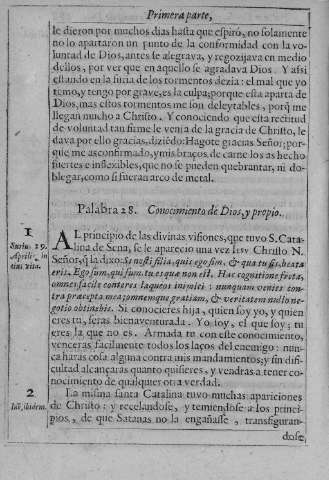 Primera parte,
le dieron por muchos dias hasta que espirò, no solamente
no lo apartaron un punto de la conformidad con la vo-
luntad de Dios, antes se alegrava, y regozijava en medio
dellos, por ver que en aquello se agradava Dios. Y assi
estando en la furia de los tormentos dezia: el mal que yo
temo, y tengo por grave, es la culpa; porque esta aparta de
Dios, mas estos tormentos me son deleytables, porq̃ me
llegan mucho a Christo. Y conociendo que esta rectitud
de voluntad tan firme le venia de la gracia de Christo, le
dava por ello gracias, diziẽdo: Hagote gracias Señor; por-
que me as confirmado, y mis braços de carne los as hecho
fuertes e inflexibles, que no se pueden quebrantar, ni do-
blegar, como si fueran arco de metal.
Palabra 28. Conocimiento de Dios, y propio.
1
Surius 29.
Aprilis in
eius vita.
AL principio de las divinas visiones, que tuvo S. Cata-
lina de Sena, se le aparecio una vez Iesu Christo N.
Señor, q̃ la dixo: Si nosti filia, quis ego sum, & quæ tu sis, beata
eris. Ego sum, qui sum, tu es quæ non est. Hac cognitione freta,
omnes facile conteres laqueos inimici: nunquam venies con-
tra præcepta mea; omnemque gratiam, & veritatem nullo ne-
gotio obtinebis. Si conocieres hija, quien soy yo, y quien
eres tu, seras bienaventurada. Yo soy, el que soy; tu
eres, la que no es. Armada tu con este conocimiento,
venceras facilmente todos los laços del enemigo: nun-
ca haras cosa alguna contra mis mandamientos; y sin difi-
cultad alcançaras quanto quisieres, y vendras a tener co-
nocimiento de qualquier otra verdad.
2
Idẽ, ibidem.
La misma santa Catalina tuvo muchas apariciones
de Christo: y recelandose, y temiendose a los princi-
pios, de que Satanas no la engañasse, transfiguran-
dose,